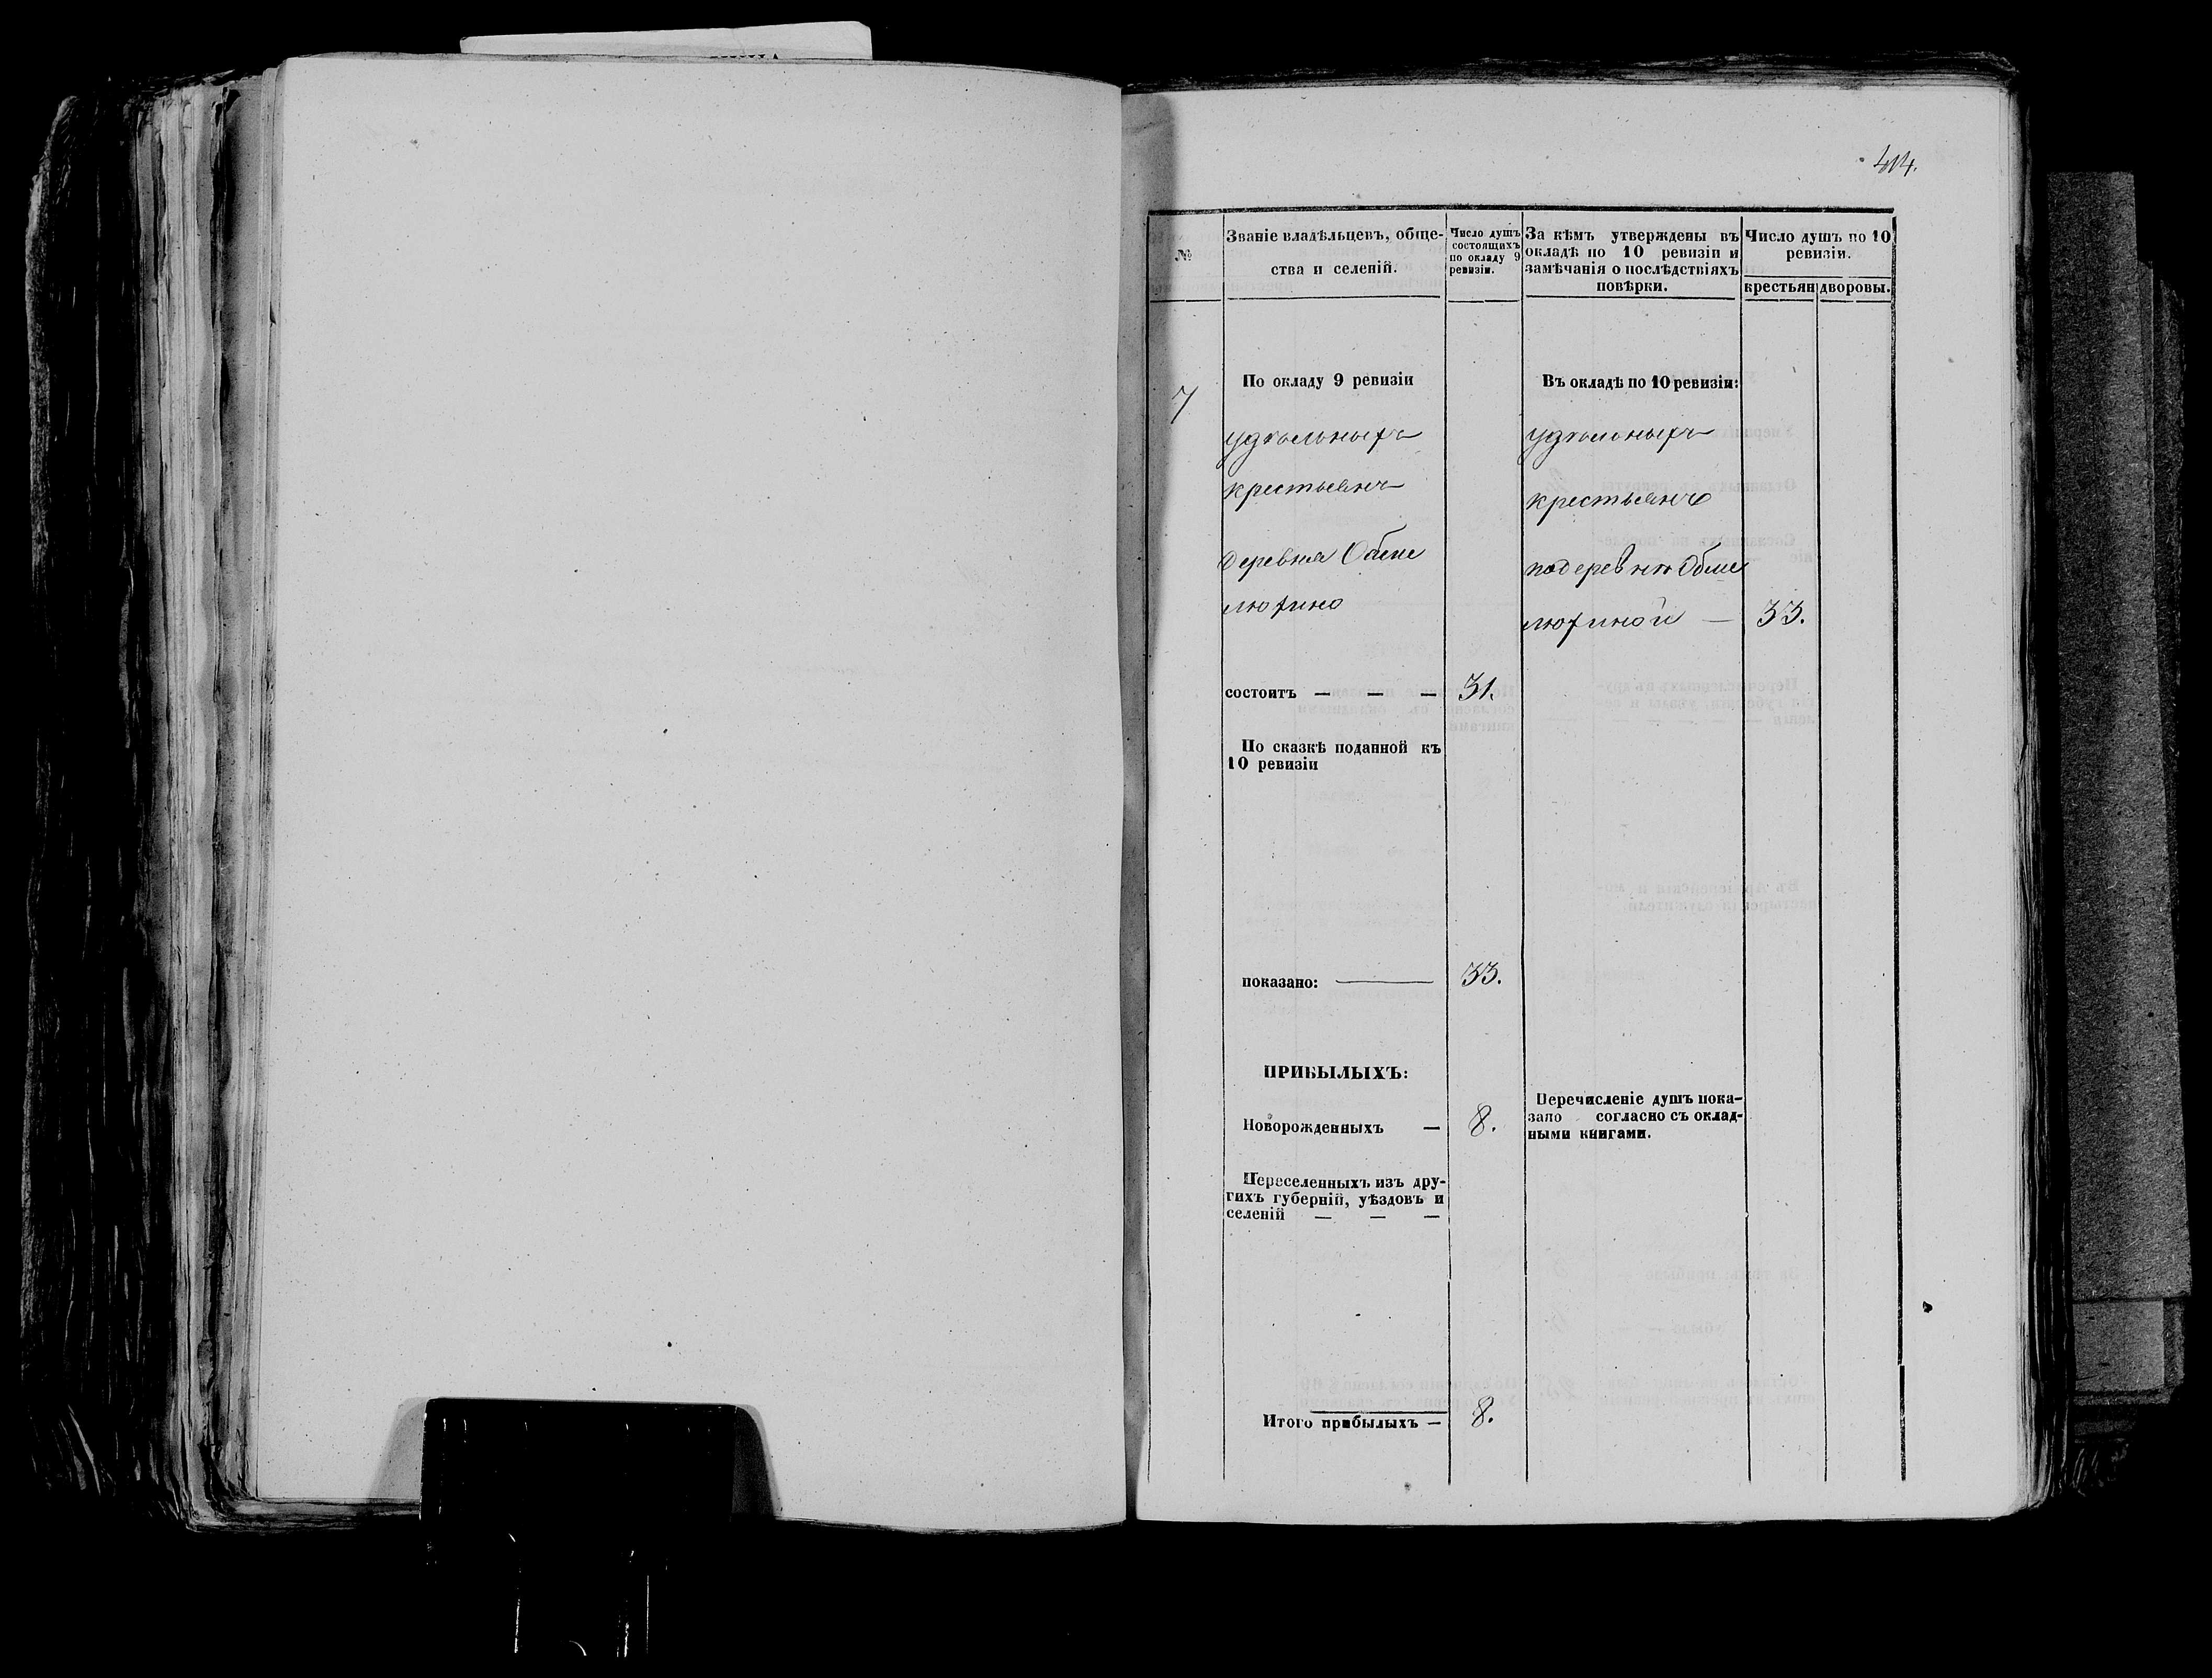 414.
№
Званіе владѣльцевъ, обще-
ства и селеній.
Число душъ
состоящихъ
по окладу 9
ревизіи.
За кѣмъ утверждены въ
окладѣ по 10 ревизіи и
замѣчанія о послѣдствіяхъ
повѣрки.
Число душъ по 10
ревизіи.
крестьян
дворовы.
7
По окладу 9 ревизіи
удѣльныхъ
крестьянъ
деревня
люхино
состоитъ — — — 31.
По сказкѣ поданной къ
10 ревизіи
показано: — 33.
ПРИБЫЛЫХЪ:
Новорожденныхъ — 8.
Переселенныхъ изъ дру-
гихъ губерній, уѣздовъ и
селеній — — —
Итого прибылыхъ — 8.
Въ окладѣ по 10 ревизіи:
удѣльныхъ
крестьянъ
по деревнѣ
люхиной — 33.
Перечисленіе душъ пока-
зано согласно съ оклад-
ными книгами.